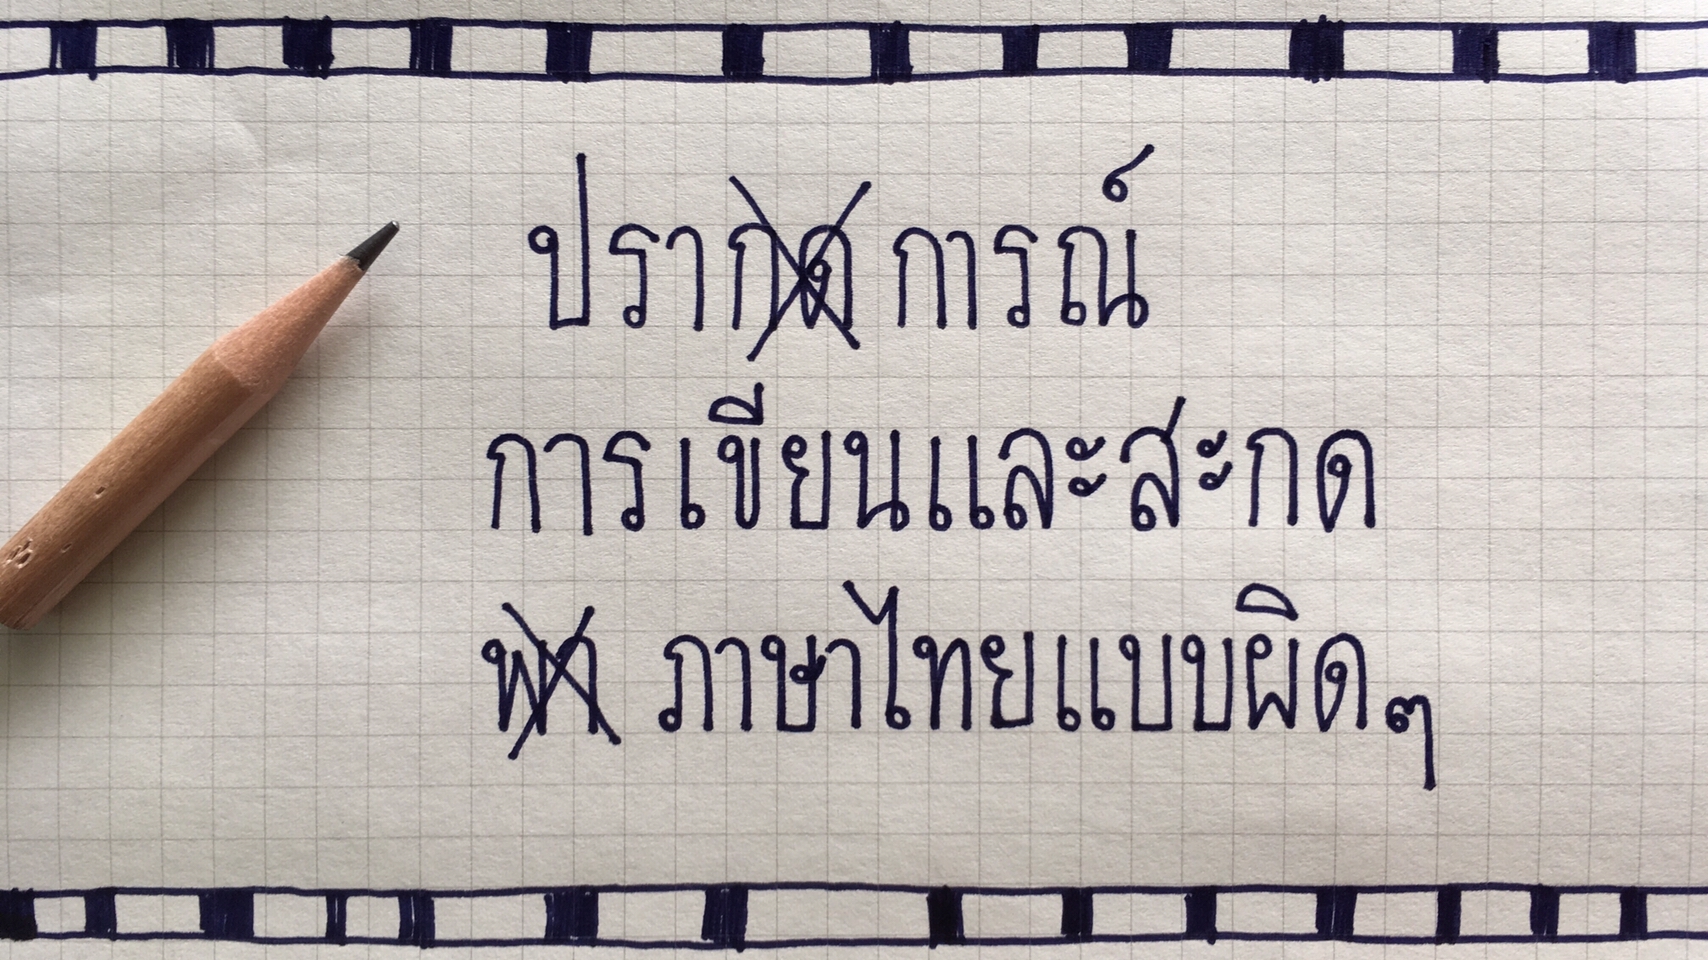 ปรากดการณ์
การเขียนและสะกด
ภาษาไทยแบบผิดๆ